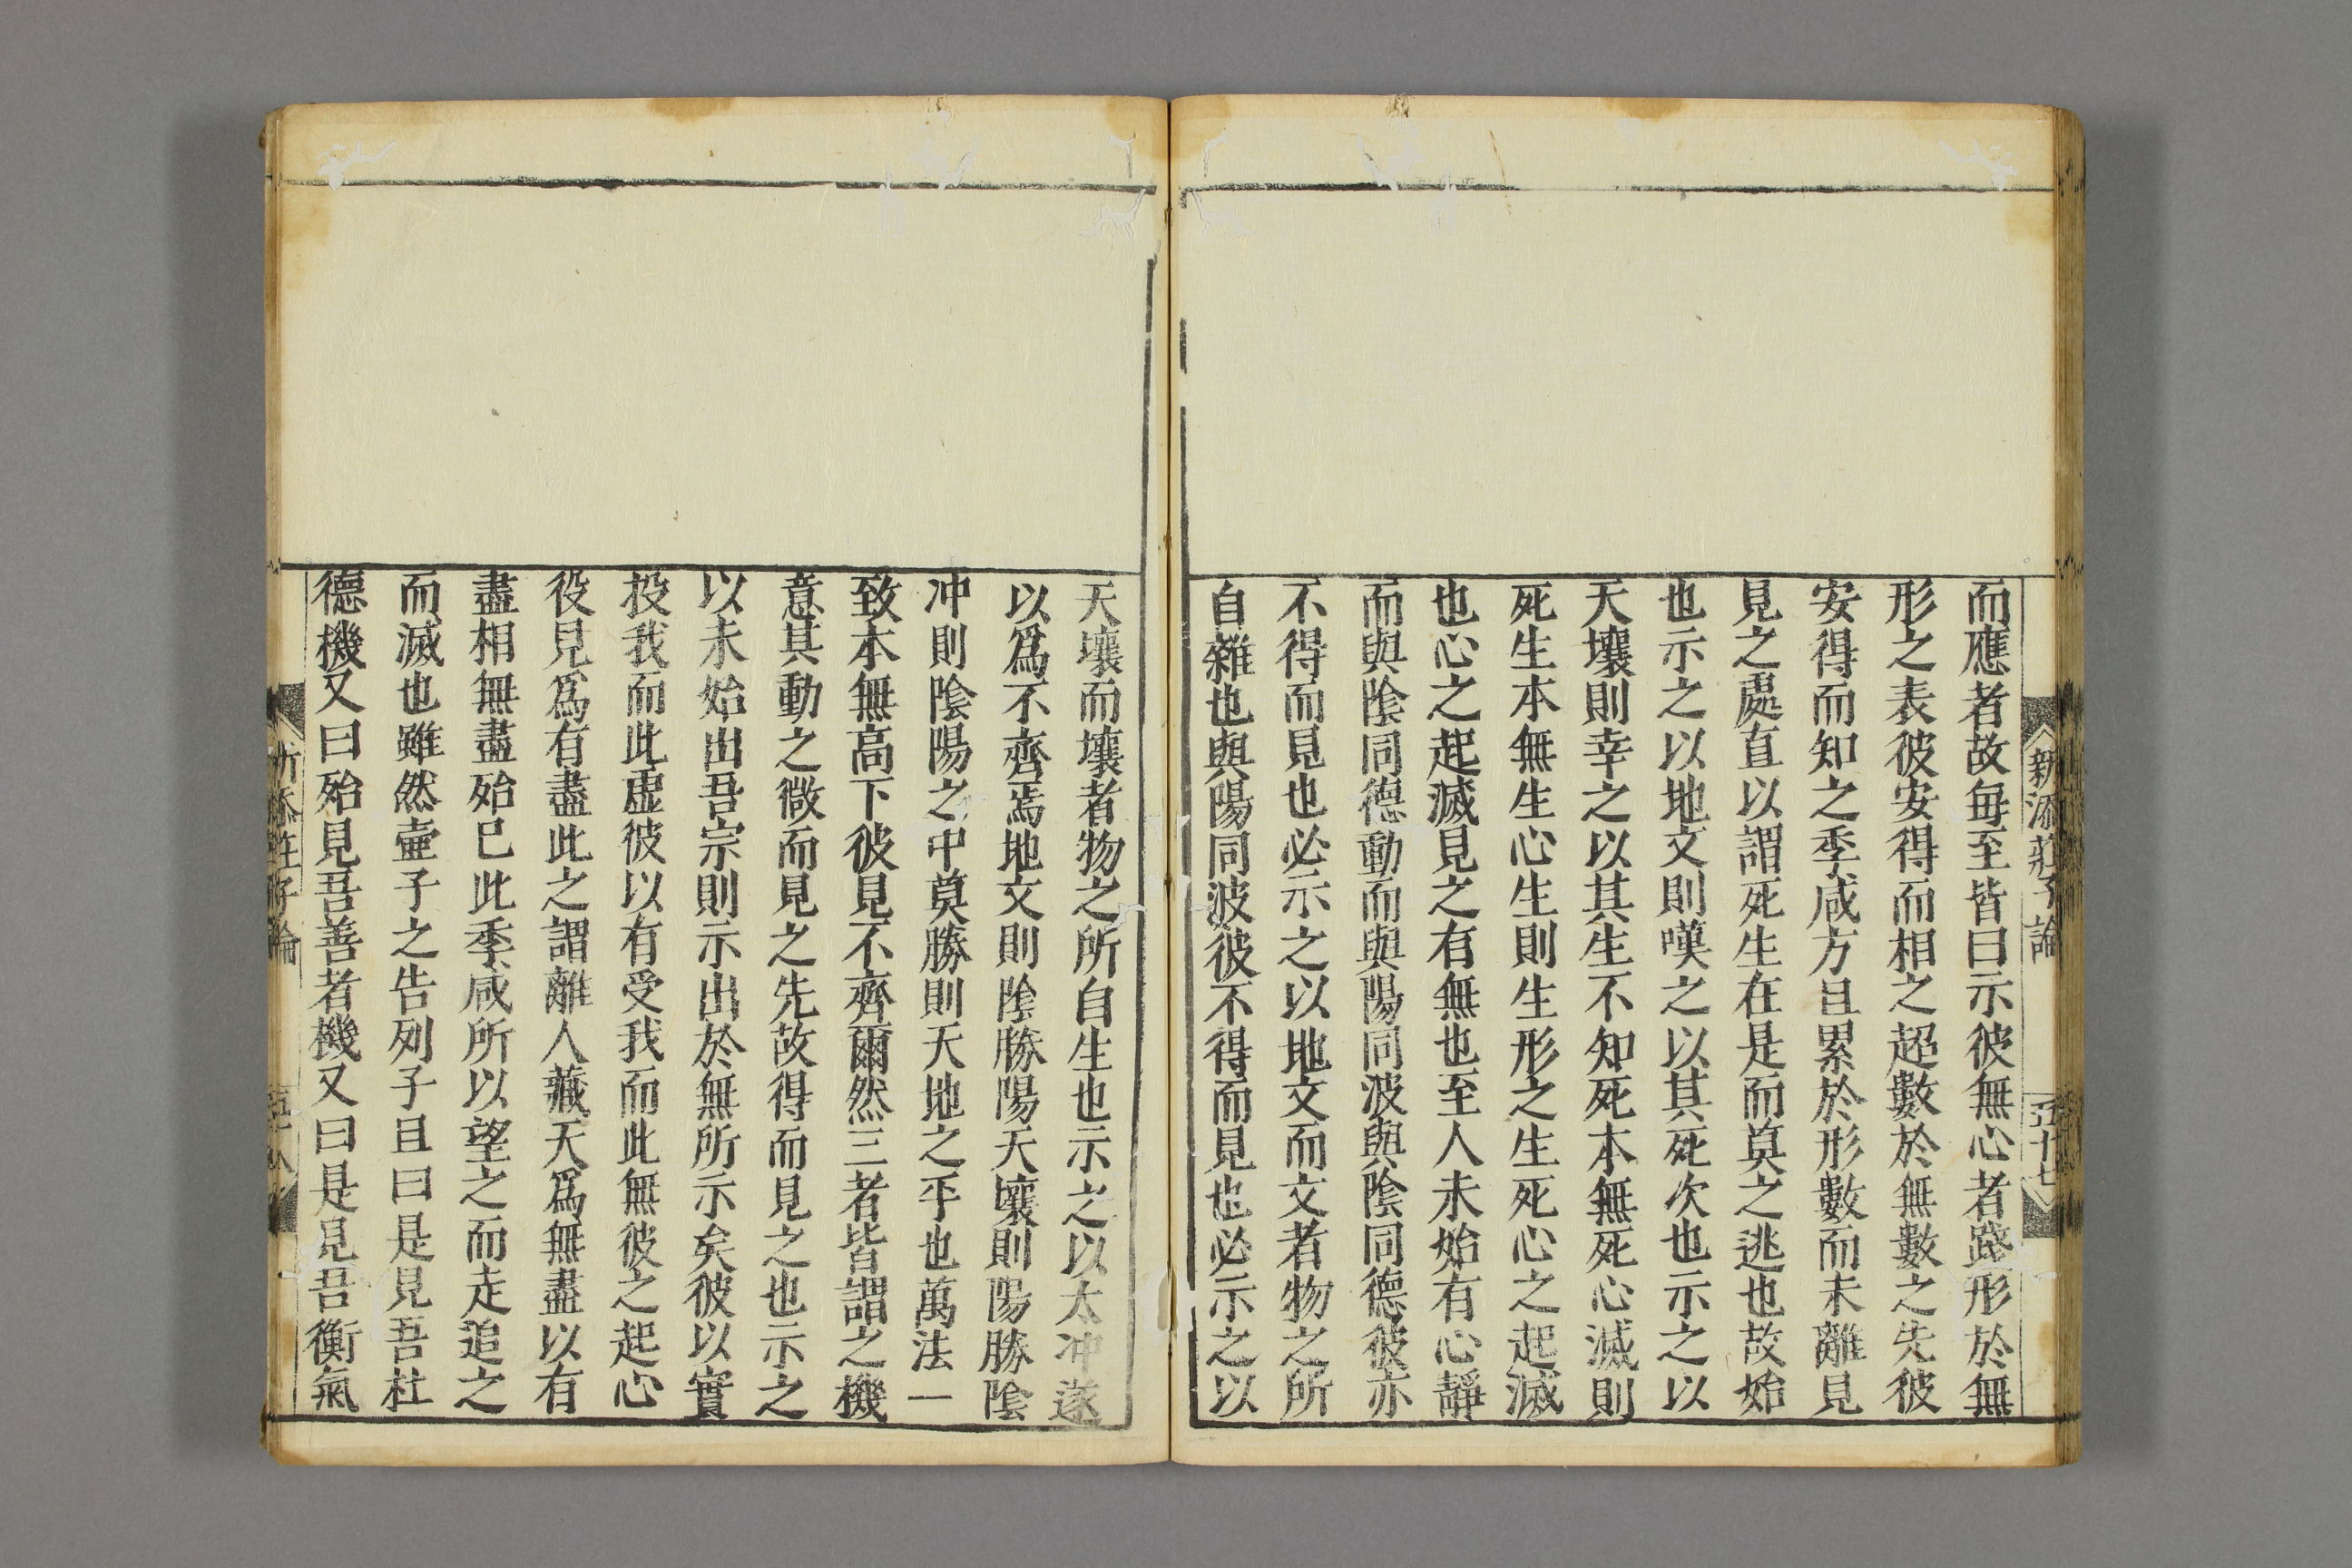 新添莊子論
亞十七
而應者故每至皆曰示彼無心者踐形於無
形之表彼安得而相之超數於無數之先彼
安得而知之季咸方且累於形數而未離見
見之處直以謂死生在是而莫之逃也故始
也示之以地文則嘆之以其死次也示之以
天壤則幸之以其生不知死本無死心滅則
死生本無生心生則生形之生死心之起滅
也心之起滅見之有無也至人未始有心靜
而與陰同德動而與陽同波與陰同德彼亦
不得而見也必示之以地文而文者物之所
自雜也與陽同波彼不得而見也必示之以
天壤而壤者物之所自生也示之以太冲遂
以爲不齊焉地文則陰勝陽天壤則陽勝陰
冲則陰陽之中莫勝則天地之平也萬法一
致本無高下彼見不齊爾然三者皆謂之機
意其動之微而見之先故得而見之也示之
以未始出吾宗則示出於無所示矣彼以實
投我而此虛彼以有受我而此無彼之起心
役見爲有盡此之謂離人藏天爲無盡以有
盡相無盡殆已此季咸所以望之而走追之
而滅也雖然壺子之告列子且曰是見吾杜
德機又曰殆見吾善者機又曰是見吾衡氣